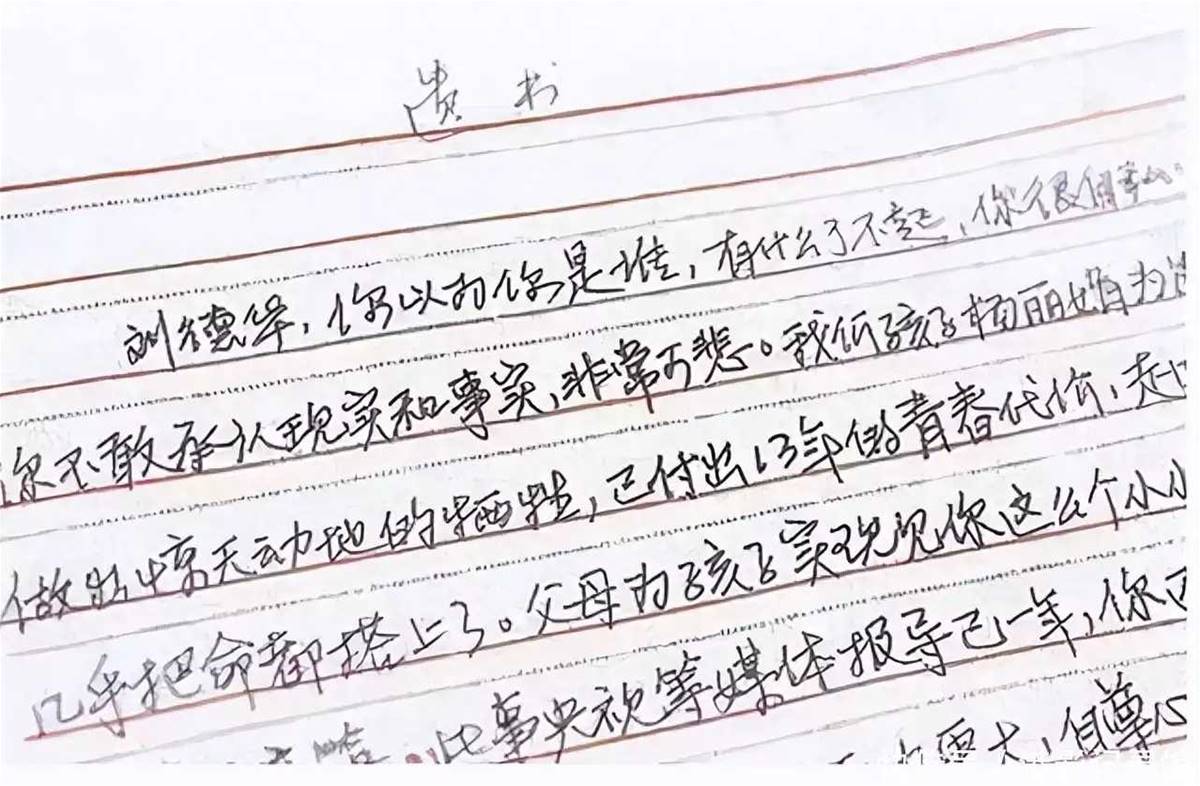 遗书
刘德华,你以为你是谁,有什么了不起,你很自
你不敢承认现实和事实,非常可悲。我的孩子杨丽娟为
做出惊天动地的牺牲,已付出13年的青春代价,赴
几乎把命都搭上了。父母为孩子实现见你这么个小小
此事央视等媒体报导已一年,你
大,自尊心